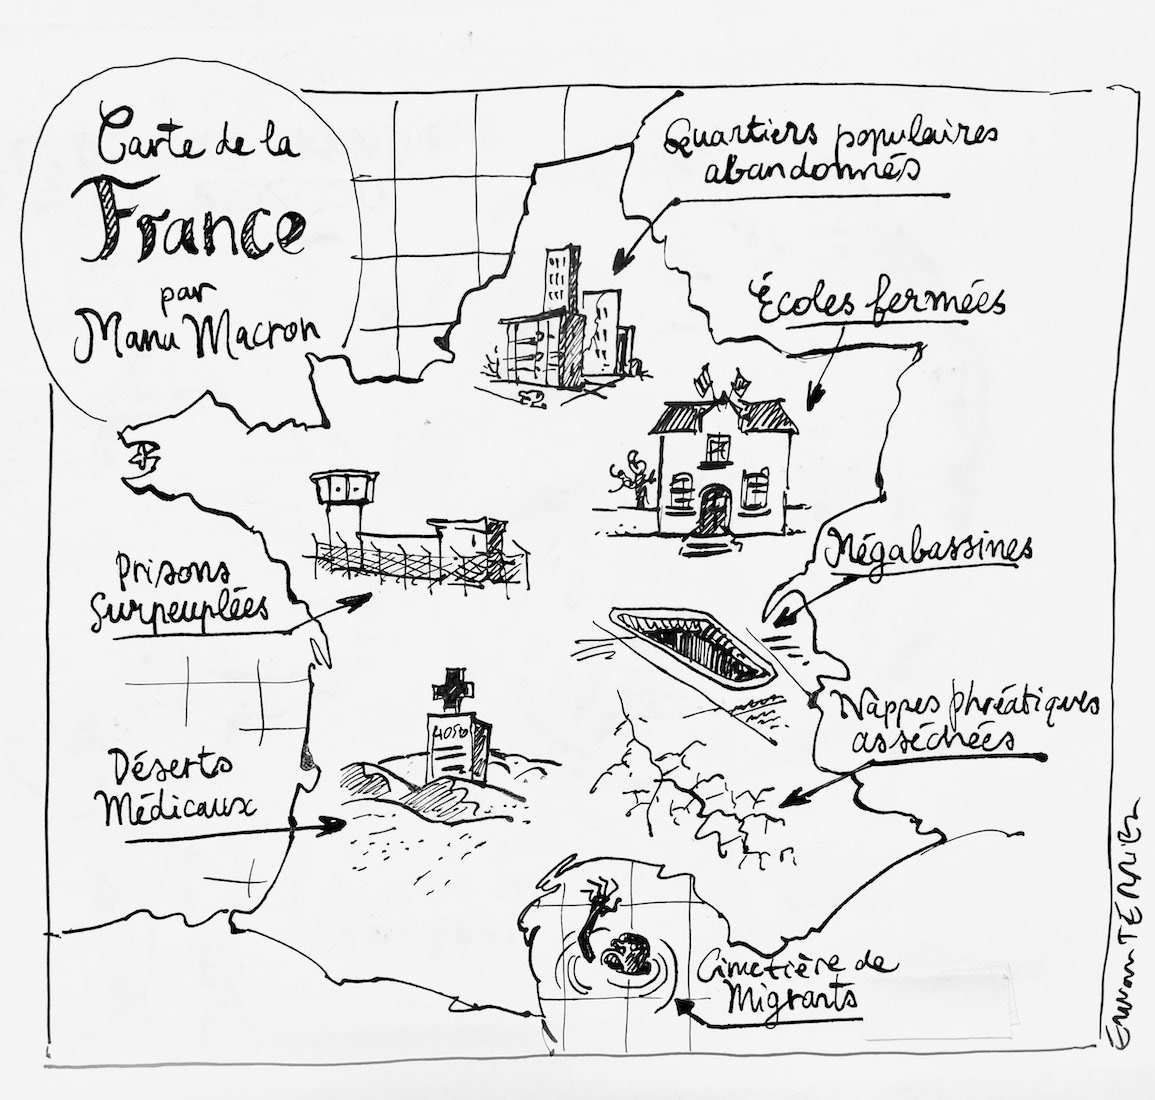 Carte de la
France
par
Manu Macron
Quartiers populaires
abandonnés
Écoles fermées
Prisons
Surpeuplées
Mégabassines
HOSTO
Déserts
Médicaux
Nappes phréatiques
asséchées
Cimetière de
Migrants
Erwan TERRIER